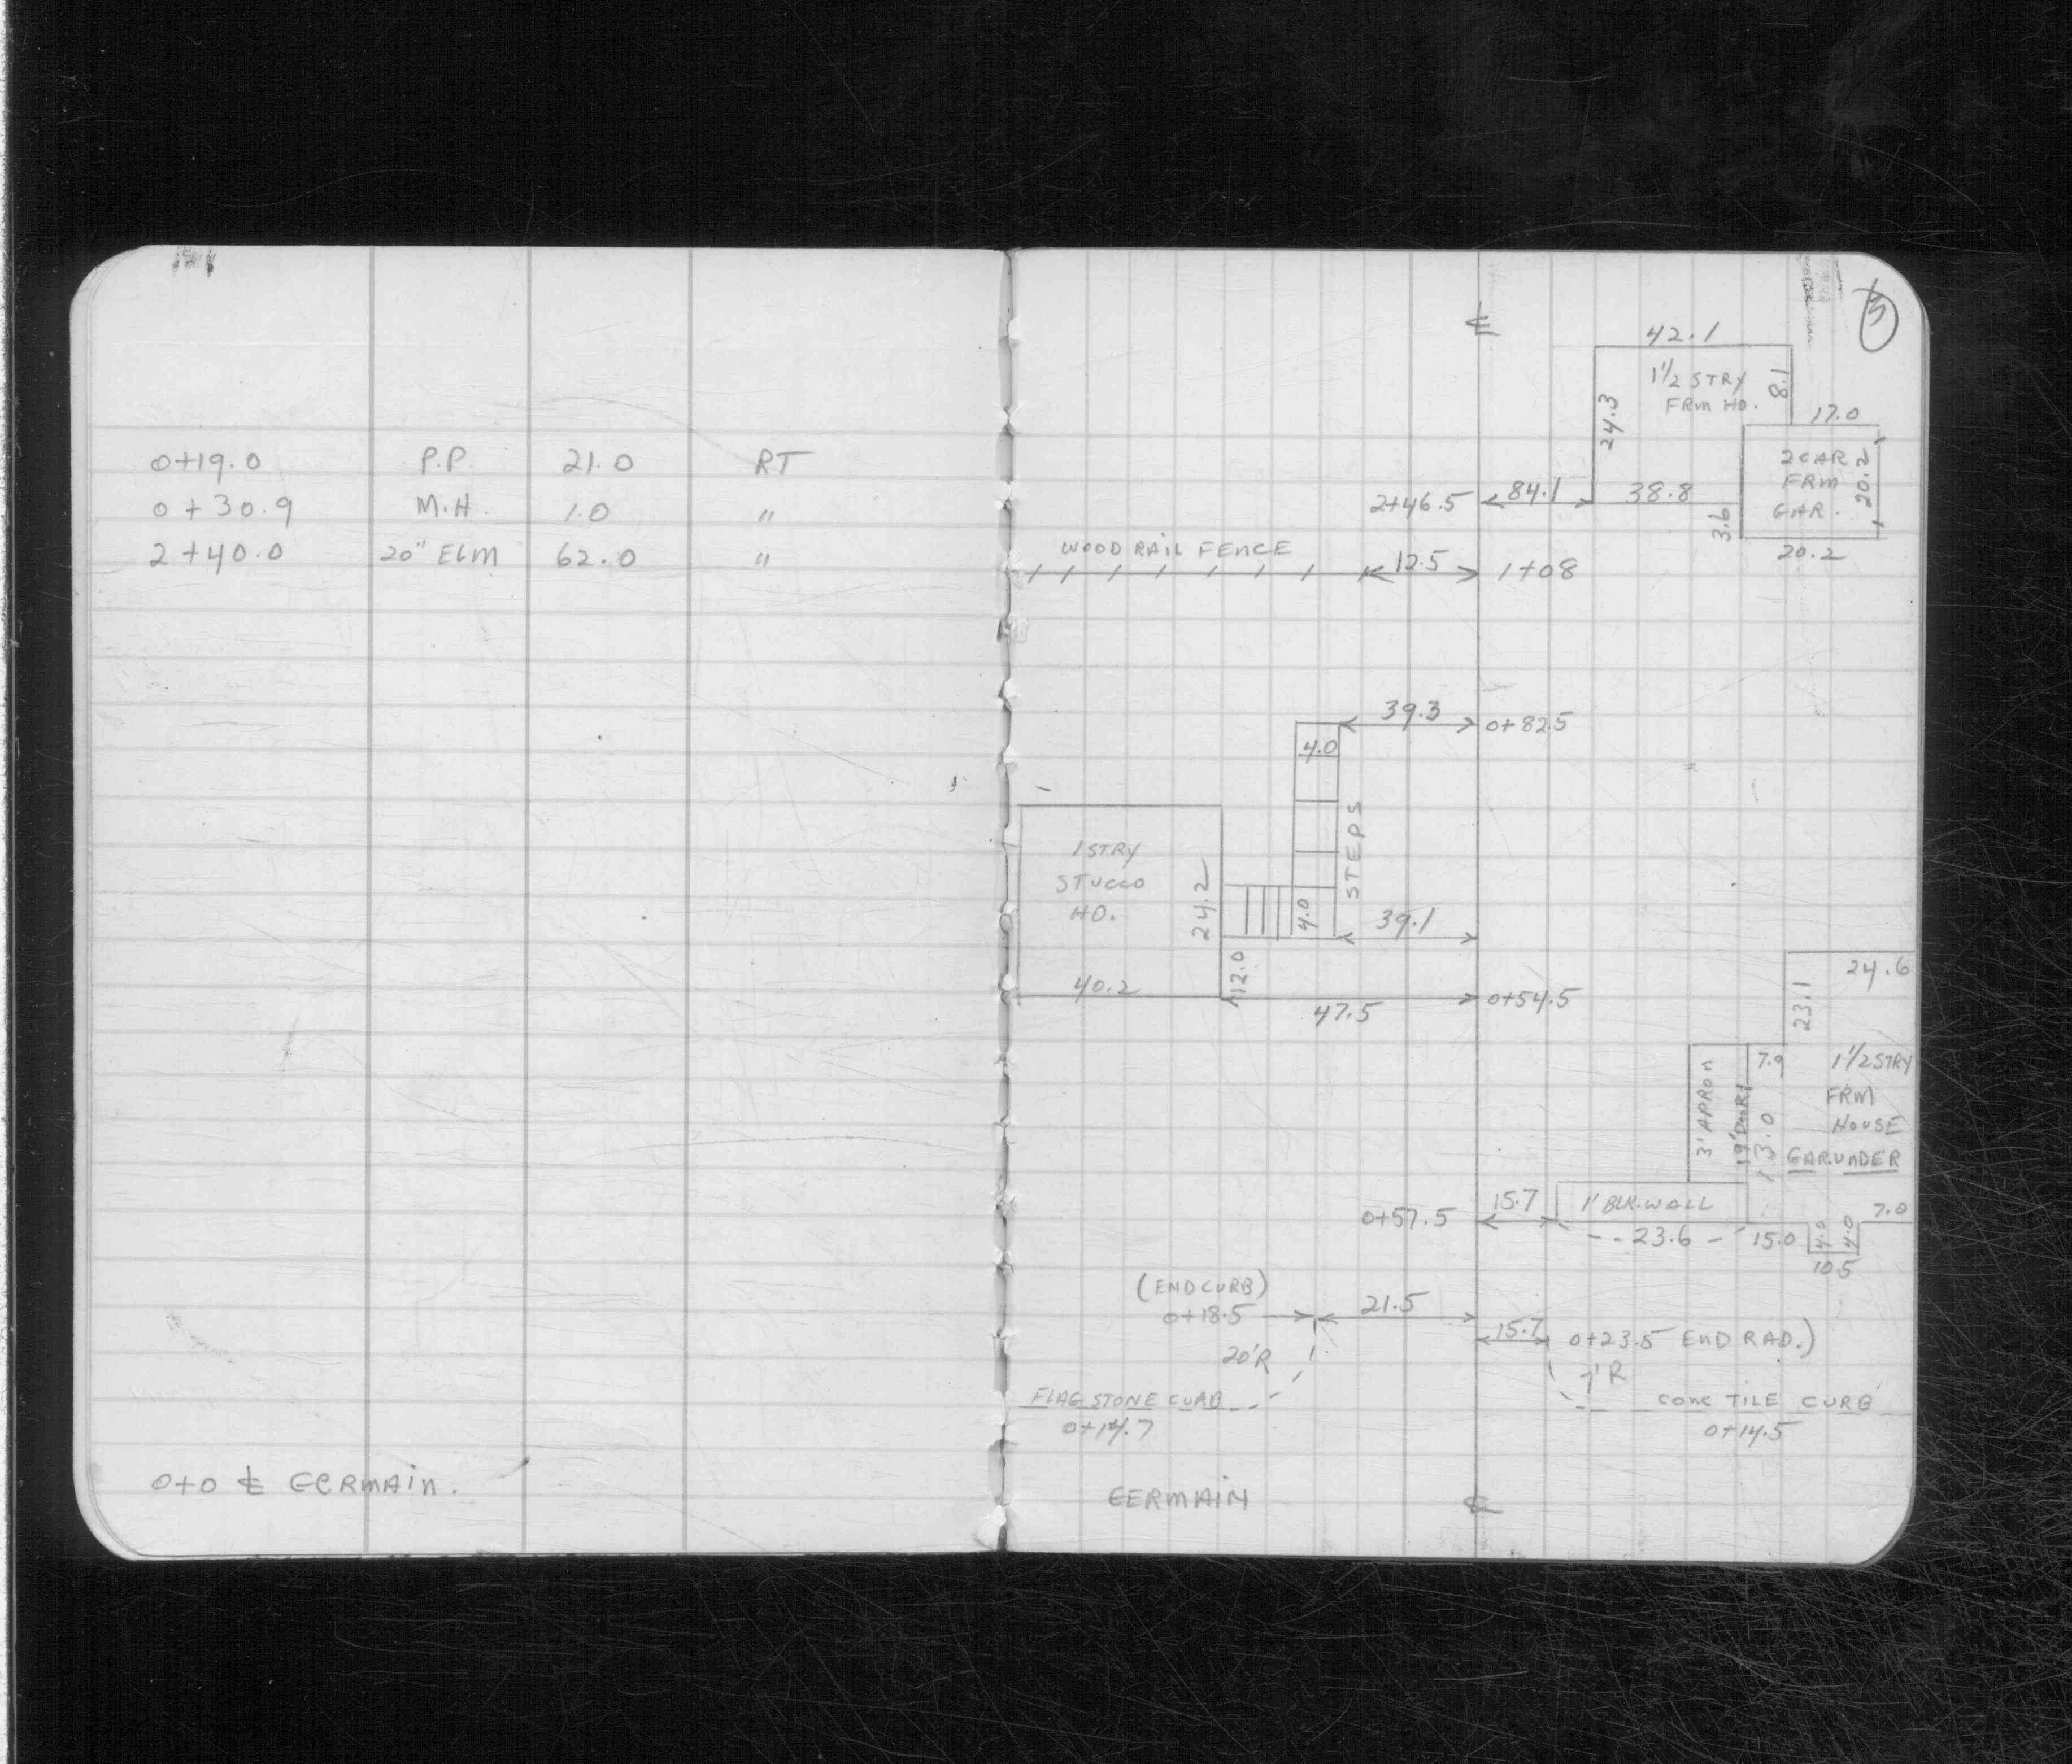 0+19.0 P.P. 21.0 RT
0+30.9 M.H. 1.0 "
2+40.0 20" ELM 62.0 "
0+0 ℄ GERMAIN.
℄
42.1
1 1/2 STRY
FRM HO.
8.1
24.3
17.0
2 CAR
FRM
GAR.
20.2
2+46.5 84.1 38.8
3.6
20.2
WOOD RAIL FENCE
12.5 1+08
39.3 0+82.5
4.0
STEPS
1 STRY
STUCCO
HO.
24.2
4.0
39.1
12.0
40.2
47.5 0+54.5
24.6
23.1
3' APRON
7.9
13.0
1 1/2 STRY
FRM
HOUSE
GAR. UNDER
0+57.5 15.7 1' BLK. WALL
23.6 15.0 4.0 4.0 7.0
10.5
(END CURB)
0+18.5 21.5
15.7 0+23.5 END RAD.)
20'R
7'R
FLAG STONE CURB
0+14.7
CONC TILE CURB
0+14.5
GERMAIN
℄